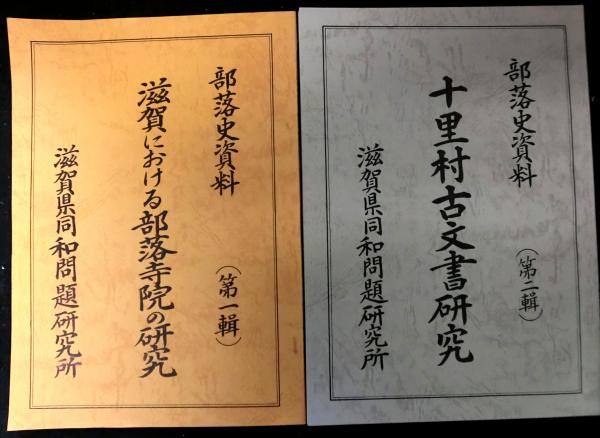 部落史資料 (第一輯)
滋賀における部落寺院の研究
滋賀県同和問題研究所
部落史資料 (第二輯)
十里村古文書研究
滋賀県同和問題研究所